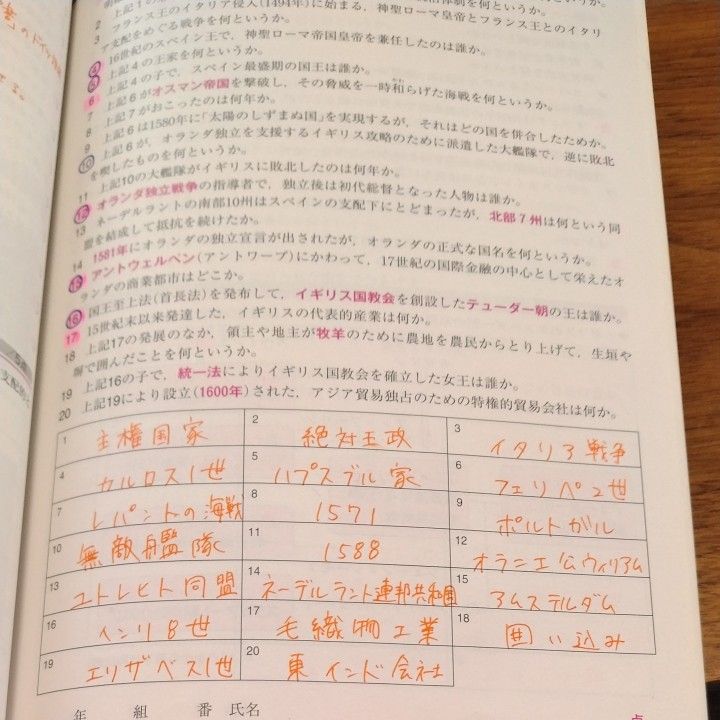 2 上記
3 フランス王のイタリア侵入(1494年)に始まる,神聖ローマ皇帝とフランス王とのイタリ
ア支配をめぐる戦争を何というか。
4 16世紀のスペイン王で,神聖ローマ帝国皇帝を兼任したのは誰か。
5 上記4の王家を何というか。
6 上記4の子で,スペイン最盛期の国王は誰か。
7 上記6がオスマン帝国を撃破し,その脅威を一時和らげた海戦を何というか。
8 上記7がおこったのは何年か。
9 上記6は1580年に「太陽のしずまぬ国」を実現するが,それはどの国を併合したためか。
10 上記6が,オランダ独立を支援するイギリス攻略のために派遣した大艦隊で,逆に敗北
を喫したものを何というか。
11 上記10の大艦隊がイギリスに敗北したのは何年か。
12 オランダ独立戦争の指導者で,独立後は初代総督となった人物は誰か。
13 ネーデルラントの南部10州はスペインの支配下にとどまったが,北部7州は何という同
盟を結成して抵抗を続けたか。
14 1581年にオランダの独立宣言が出されたが,オランダの正式な国名を何というか。
15 アントウェルペン(アントワープ)にかわって,17世紀の国際金融の中心として栄えたオ
ランダの商業都市はどこか。
16 国王至上法(首長法)を発布して,イギリス国教会を創設したテューダー朝の王は誰か。
17 15世紀末以来発達した,イギリスの代表的産業は何か。
18 上記17の発展のなか,領主や地主が牧羊のために農地を農民からとり上げて,生垣や
塀で囲んだことを何というか。
19 上記16の子で,統一法によりイギリス国教会を確立した女王は誰か。
20 上記19により設立(1600年)された,アジア貿易独占のための特権的貿易会社は何か。
1 主権国家 2 絶対王政 3 イタリア戦争
4 カルロス1世 5 ハプスブル家 6 フェリペ2世
7 レパントの海戦 8 1571 9 ポルトガル
10 無敵艦隊 11 1588 12 オラニエ公ウィリアム
13 ユトレヒト同盟 14 ネーデルラント連邦共和国 15 アムステルダム
16 ヘンリ8世 17 毛織物工業 18 囲い込み
19 エリザベス1世 20 東インド会社
年 組 番 氏名 点